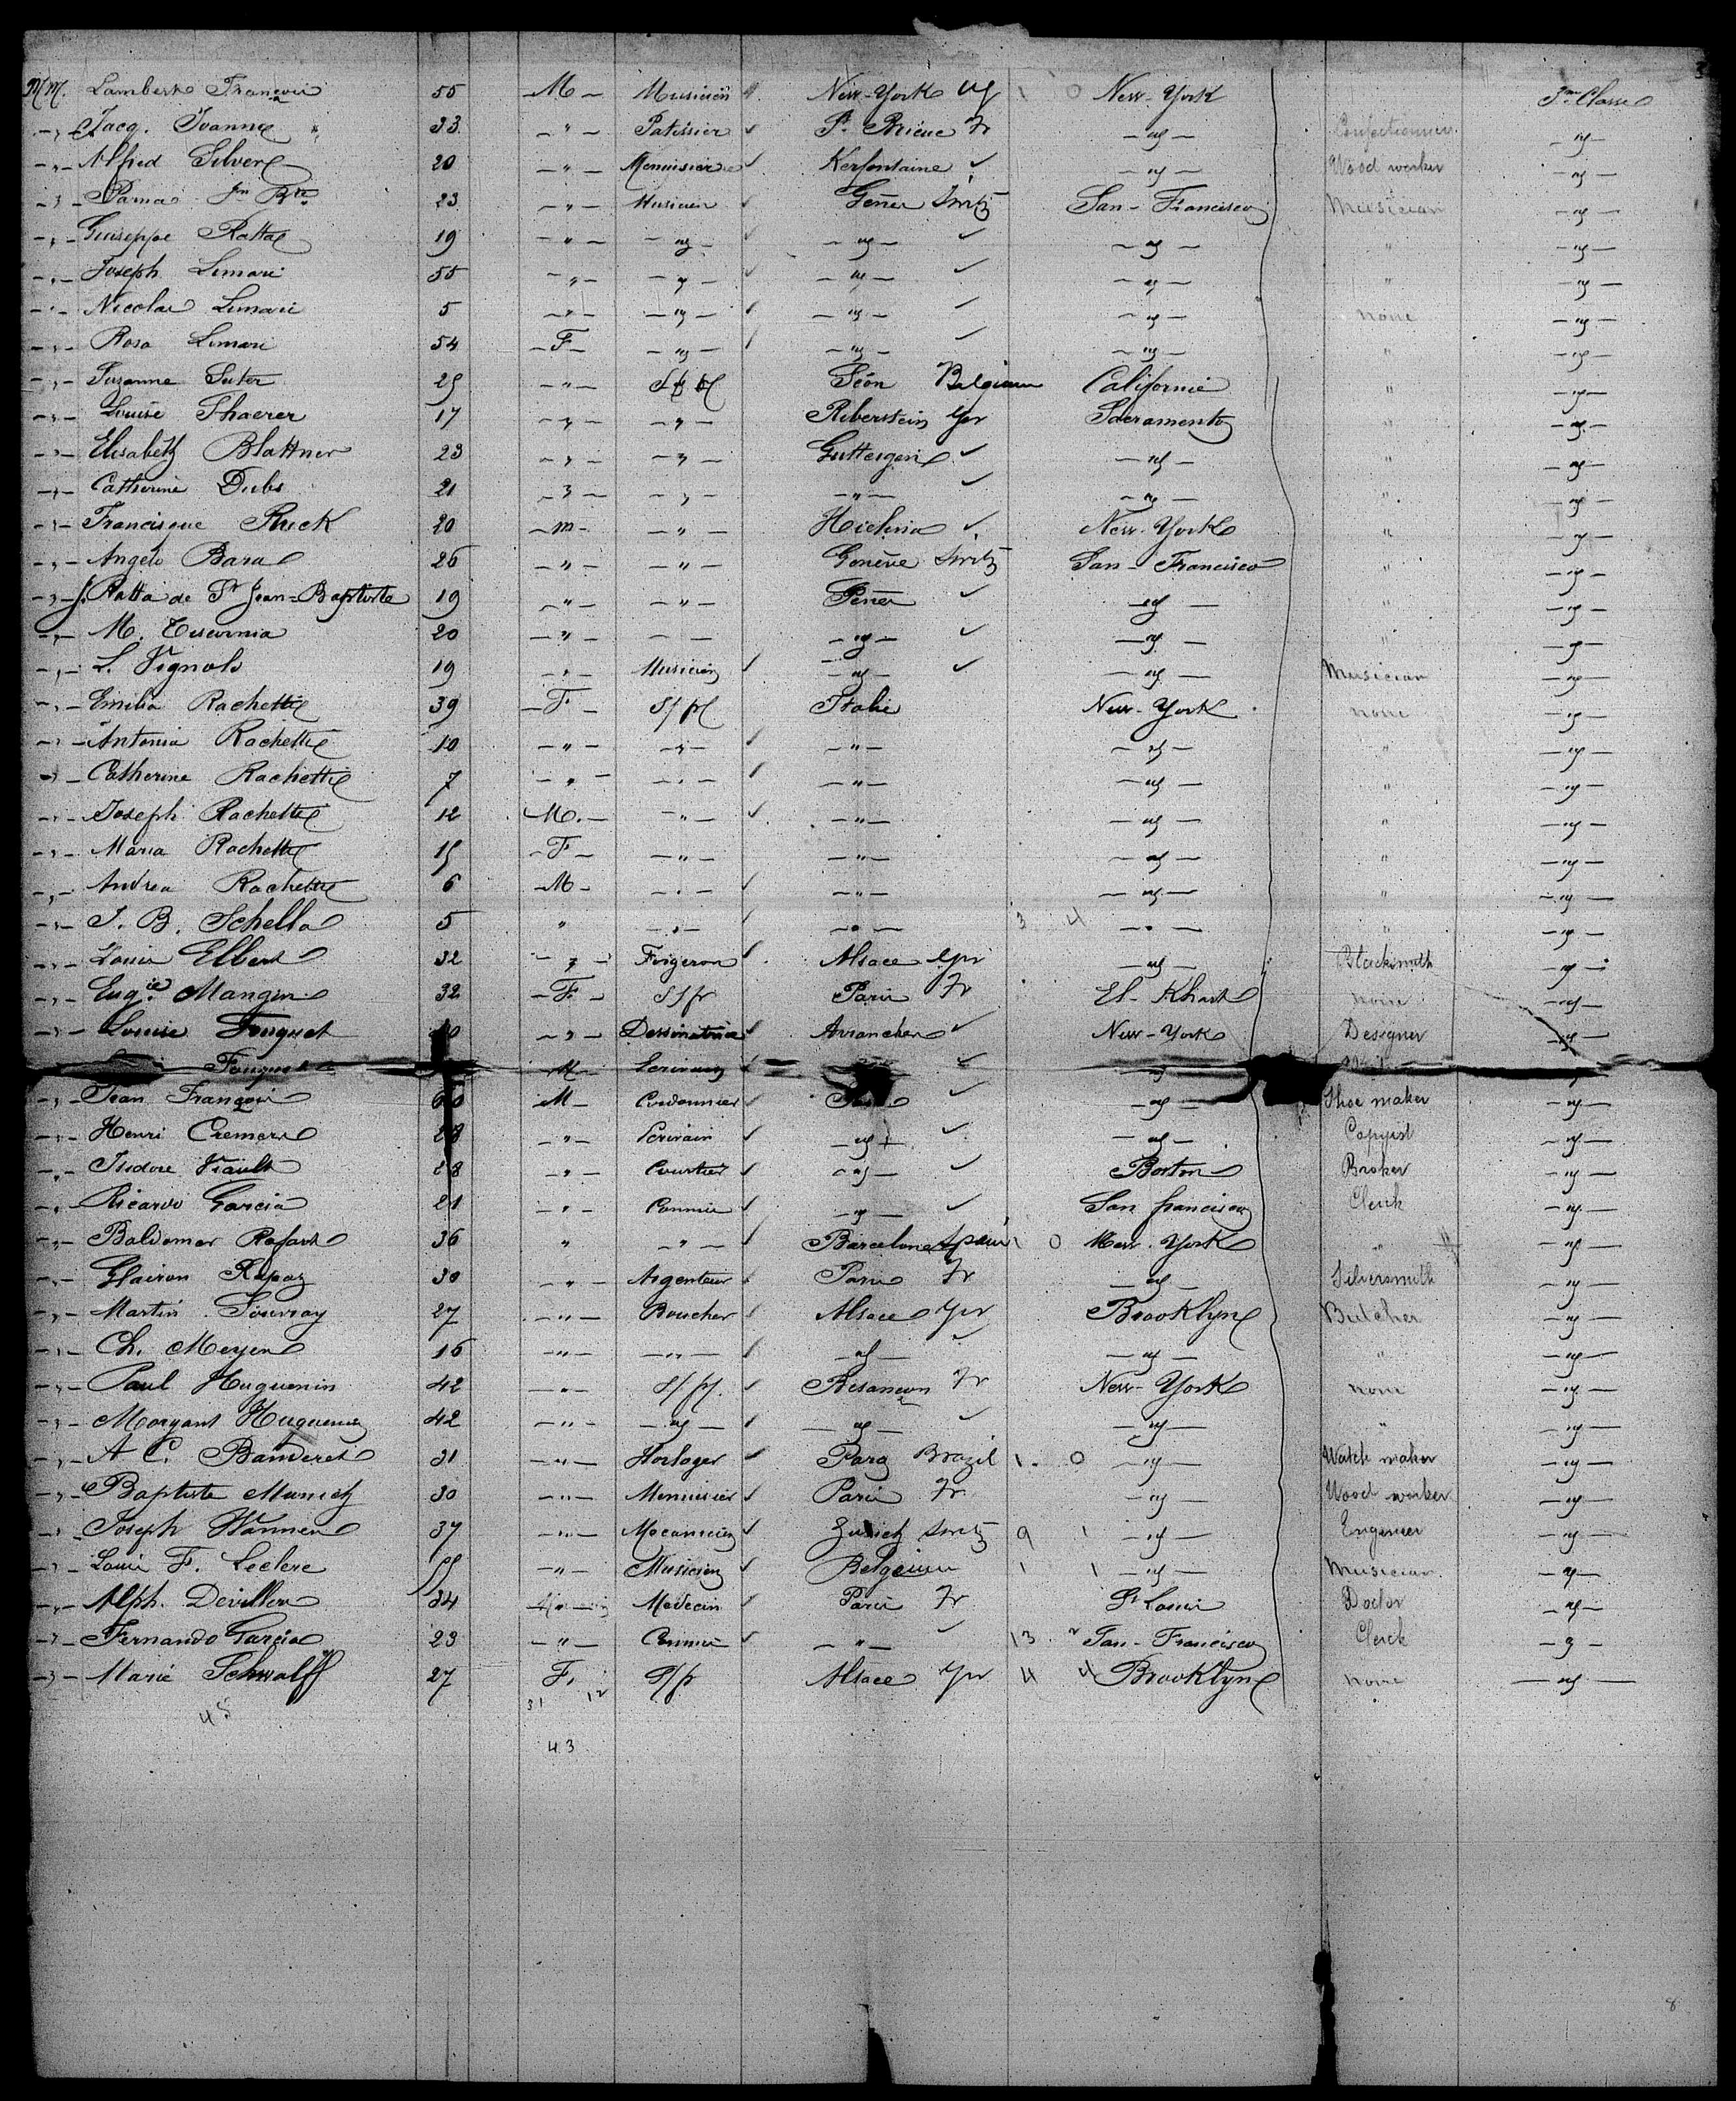 MM. Lambert François 55 M Musicien New-York New-York 3me Classe
Jacq. Ivanne 33 " Patissier St Brieuc Fr " Confectioner "
Alfred Silvere 20 " Menuisier Kerfontaine " Wood worker "
Parma Jn Bte 23 " Musicien Gènes Switz San-Francisco Musician "
Giuseppe Ratta 19 " " " " " "
Joseph Limari 55 " " " " " "
Nicolas Limari 5 " " " " none "
Rosa Limari 54 F " " " " "
Suzanne Suter 25 " S/pf Séon Belgium Californie " "
Louise Thaerer 17 " " Riberstein Ger Sacramento " "
Elisabeth Blattner 23 " " Guttergen " " "
Catherine Dubs 21 " " " " " "
Francisque Ruck 20 m " New-York " "
Angelo Bara 26 " " Genève Switz San-Francisco " "
J. Ratta de St Jean-Baptiste 19 " " " " "
M. 20 " " " " "
L. Vignolo 19 " Musicien " " Musician "
Emilia Rachette 39 F S/pf Italie New-York none "
Antonia Rachette 10 " " " " " "
Catherine Rachette 7 " " " " " "
Joseph Rachette 12 M. " " " " "
Maria Rachette 15 F " " " " "
Andrea Rachette 6 M " " " " "
J. B. Schella 5 " " " 3 4 " " "
Louis Elbert 32 " Forgeron Alsace Ger " Blacksmith "
Eugie Mangin 32 F S/pf Paris Fr El-Khart none "
Louise Fouquet " Dessinatrice Avranches New-York Designer "
Fouquet M Ecrivain "
Jean François M Cordonnier " Shoe maker "
Henri Cremers " Ecrivain " " Copyist "
Isidore Viault " Courtier " Boston Broker "
Ricardo Garcia 21 " Commis " San francisco Clerk "
Baldomer Rafart 36 " " Barcelone Spain 1 0 New-York " "
Glairon Rapaz 30 " Argenteur Paris Fr " Silversmith "
Martin Souvray 27 " Boucher Alsace Ger Brooklyn Butcher "
Ch. Meyer 16 " " " " " "
Paul Huguenin 42 " S/pf. Besançon Fr New-York none "
Morgant Huguenin 42 " " " " " "
A C. Banderet 31 " Horloger Para Brazil 1 0 " Watch maker "
Baptiste Munich 30 " Menuisier Paris Fr " Wood worker "
Joseph Wanner 37 " Mecanicien Zurich Switz 9 1 " Engineer "
Louis F. Leclerc 55 " Musicien Belgium 1 1 " Musician "
Alph. Deviller 34 Medecin Paris Fr St Louis Doctor "
Fernando Garcia 23 " Commis " 13 2 San-Francisco Clerk "
Marie Schwalff 27 F. S/pf Alsace Ger 4 4 Brooklyn none "
31 12
45
43
8